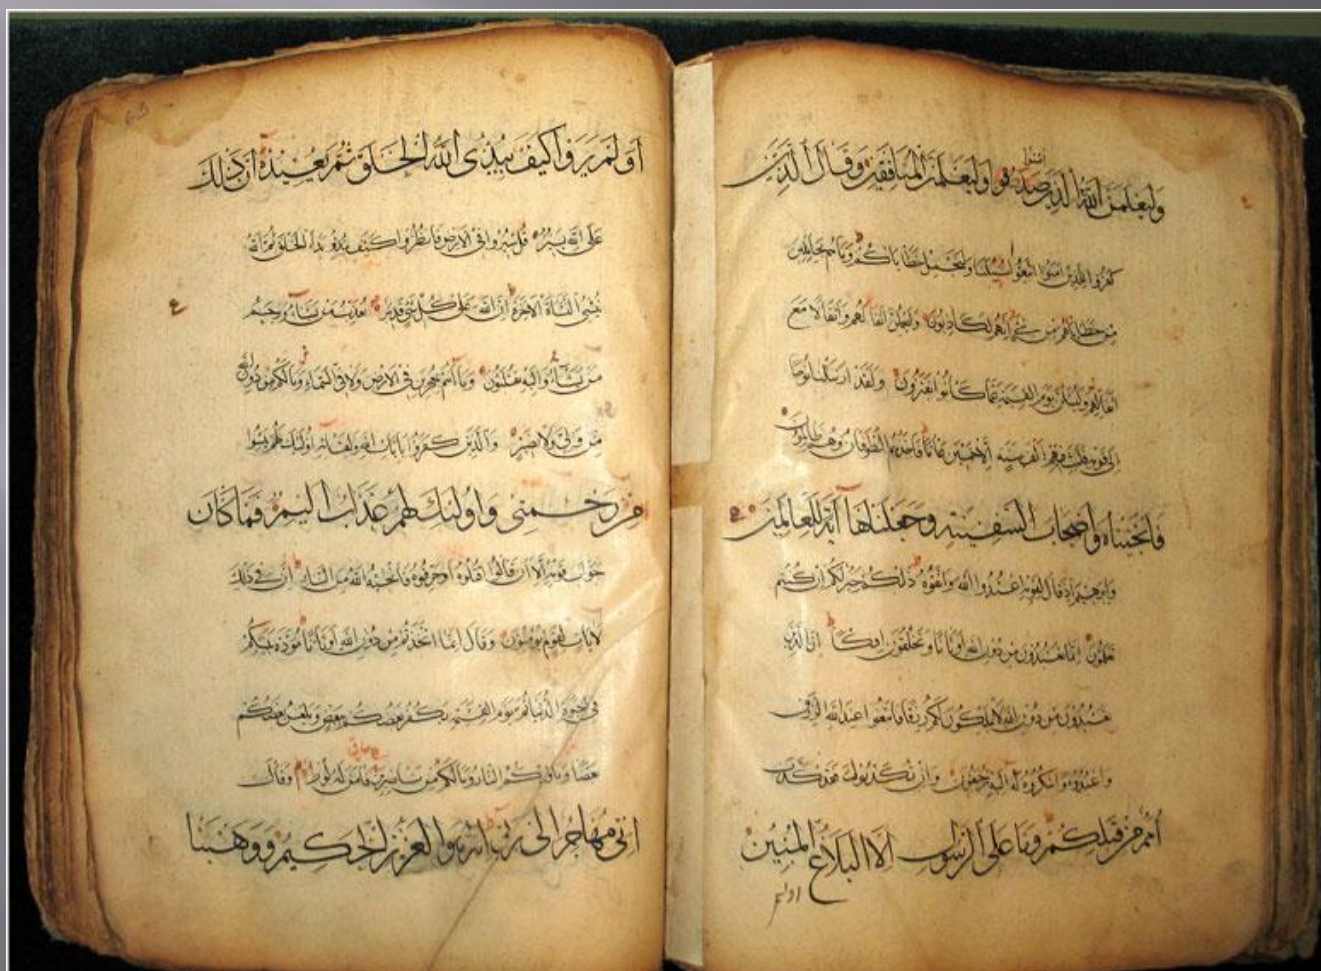 وليعلمن الله الذين صدقوا وليعلمن المنافقين وقال الذين
امنوا
كفروا للذين امنوا اتبعوا سبيلنا ولنحمل خطاياكم وما هم بحاملين
من خطاياهم من شئ انهم لكاذبون وليحملن اثقالهم واثقالا مع
اثقالهم وليسئلن يوم القيمة عما كانوا يفترون ولقد ارسلنا نوحا
الى قومه فلبث فيهم الف سنة الا خمسين عاما فاخذهم الطوفان وهم ظالمون
فانجيناه واصحاب السفينة وجعلناها آية للعالمين
وابرهيم اذ قال لقومه اعبدوا الله واتقوه ذلكم خير لكم ان كنتم
تعلمون انما تعبدون من دون الله اوثانا وتخلقون افكا ان الذين
تعبدون من دون الله لا يملكون لكم رزقا فابتغوا عند الله الرزق
واعبدوه واشكروا له اليه ترجعون وان تكذبوا فقد كذب
امم من قبلكم وما على الرسول الا البلاغ المبين
اولم
اولم يروا كيف يبدئ الله الخلق ثم يعيده ان ذلك
على الله يسير قل سيروا في الارض فانظروا كيف بدأ الخلق ثم الله
ينشئ النشأة الآخرة ان الله على كل شئ قدير يعذب من يشاء ويرحم
من يشاء واليه تقلبون وما انتم بمعجزين في الارض ولا في السماء وما لكم من دون الله
من ولي ولا نصير والذين كفروا بايات الله ولقائه اولئك يئسوا
من رحمتي واولئك لهم عذاب اليم فما كان
جواب قومه الا ان قالوا اقتلوه او حرقوه فانجيه الله من النار ان في ذلك
لايات لقوم يؤمنون وقال انما اتخذتم من دون الله اوثانا مودة بينكم
في الحيوة الدنيا ثم يوم القيمة يكفر بعضكم ببعض ويلعن بعضكم
بعضا ومأويكم النار وما لكم من ناصرين فامن له لوط وقال
اني مهاجر الى ربي انه هو العزيز الحكيم ووهبنا